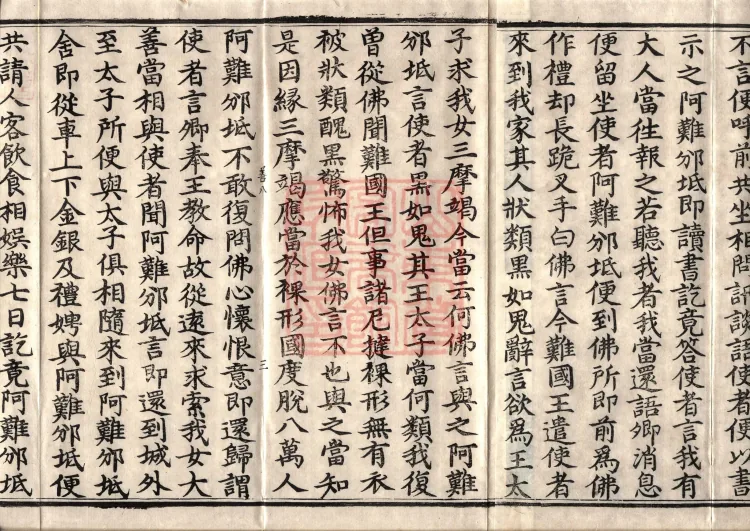 不言便呼前共坐相問訊談語使者便以書
示之阿難邠坻即讀書訖竟答使者言我有
大人當往報之若聽我者我當還語卿消息
便留坐使者阿難邠坻便到佛所即前為佛
作禮却長跪叉手白佛言今難國王遣使者
來到我家其人狀類黑如鬼辭言欲為王太
子求我女三摩竭今當云何佛言與之阿難
邠坻言使者黑如鬼其王太子當何類我復
曾從佛聞難國王但事諸尼揵裸形無有衣
被狀類醜黑驚怖我女佛言不也與之當知
是因緣三摩竭應當於裸形國度脫八萬人
善八
三
阿難邠坻不敢復問佛心懷恨意即還歸謂
使者言卿奉王教命故從遠來求索我女大
善當相與使者聞阿難邠坻言即還到城外
至太子所便與太子俱相隨來到阿難邠坻
舍即從車上下金銀及禮娉與阿難邠坻便
共請人客飲食相娛樂七日訖竟阿難邠坻